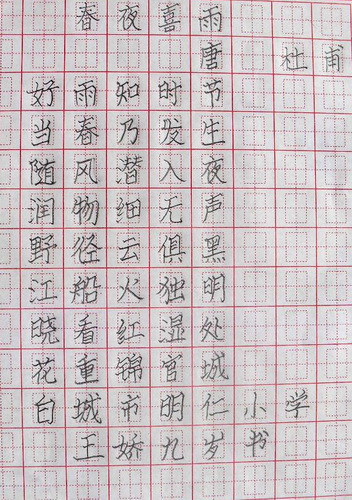 春夜喜雨
唐 杜甫
好雨知时节
当春乃发生
随风潜入夜
润物细无声
野径云俱黑
江船火独明
晓看红湿处
花重锦官城
白城市明仁小学
王娇九岁书